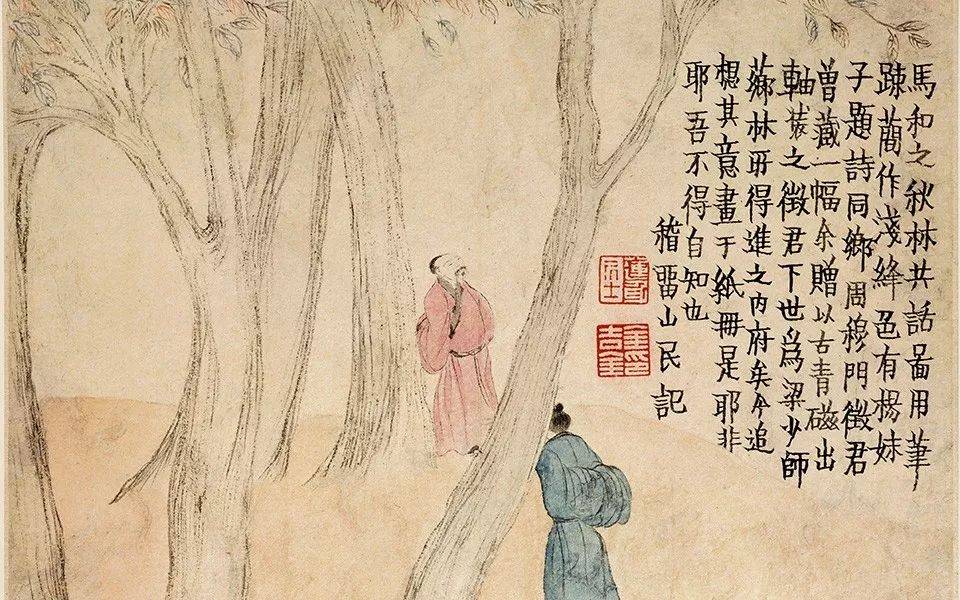 馬和之秋林共話啚用筆
踈蕳作淺絳色有楊妹
子題詩同鄉周穆門徵君
曾藏一幅余贈以古青磁出
軸裝之徵君下世為梁少師
薌林所得進之内府矣今追
想其意畫于紙冊是耶非
耶吾不得自知也
稽畱山民記
金吉金印